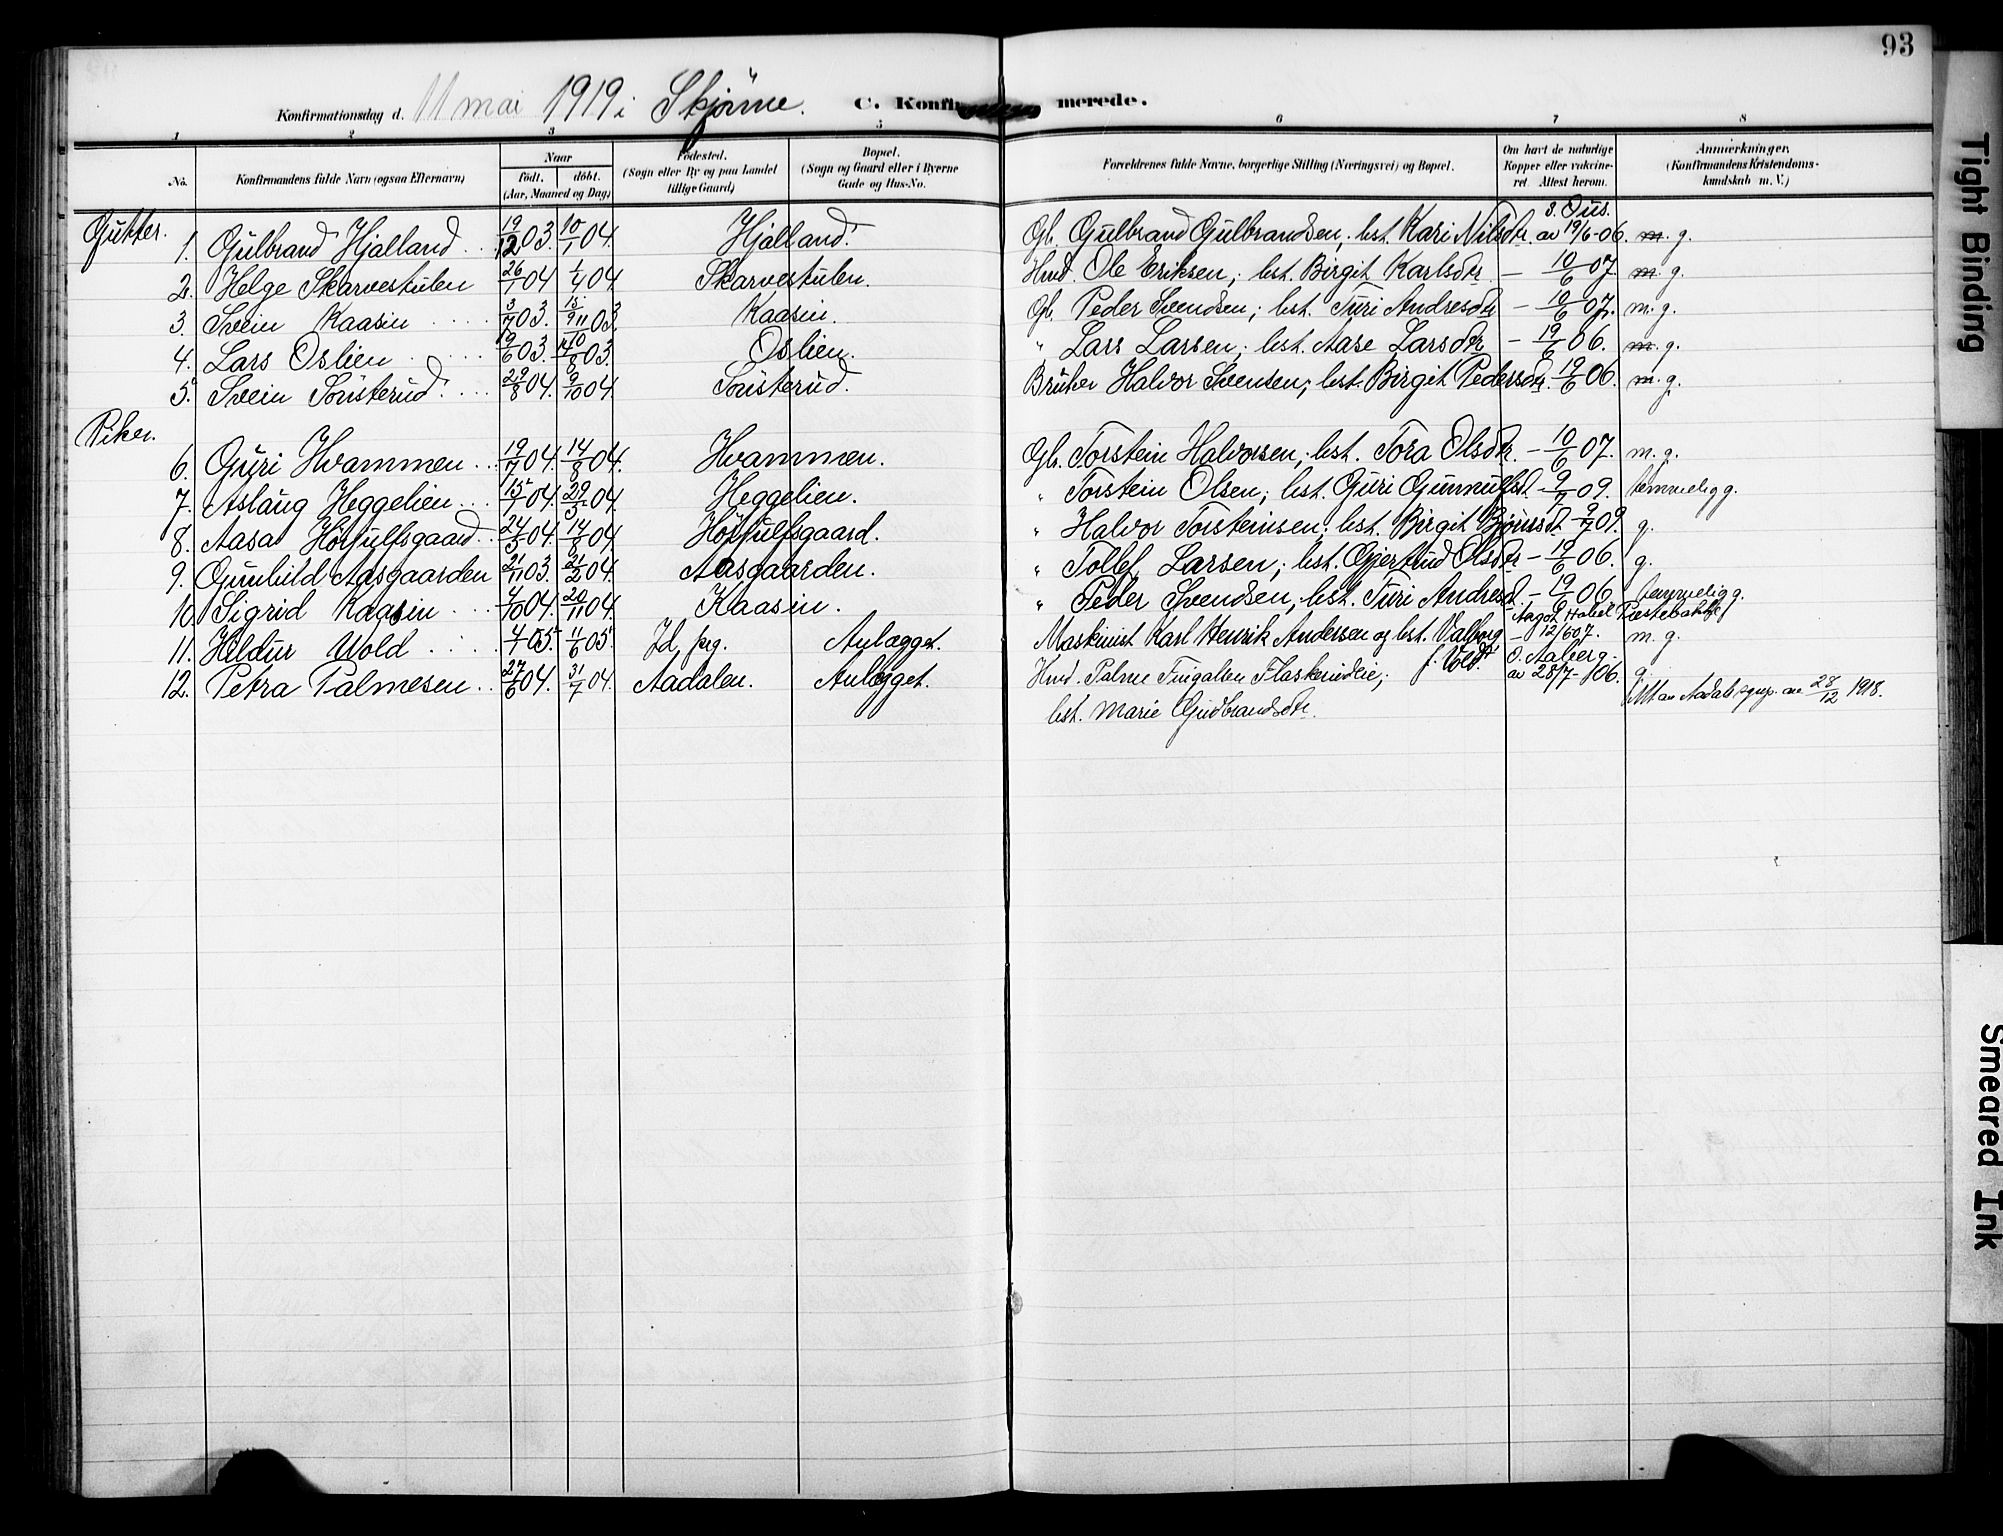 93
Konfirmationsdag d. 11 mai 1919 i Skjønne. C. Konfirmerede.
1 2 3 5 6 7 8
No. Konfirmandens fulde Navn (ogsaa Efternavn) Naar født. døbt. (Aar, Maaned og Dag) Fødested. (Sogn eller By og paa Landet tillige Gaard) Bopæl. (Sogn og Gaard eller i Byerne Gade og Hus-No. Forældrenes fulde Navne, borgerlige Stilling (Næringsvei) og Bopæl. Om havt de naturlige Kopper eller vakcineret. Attest herom. Anmerkninger. (Konfirmandens Kristendomskundskab m. V.)
Gutter.
1. Gulbrand Hjalland 19/12 03. 10/1 04. Hjalland. Gb. Gulbrand Gulbrandsen, hst. Kari Nilsdtr. av 19/6-06. m. g.
2. Helge Skarvestulen 26/1 04 4/4 04. Skarvestulen. Hmd. Ole Eriksen; hst. Birgit Karlsdtr — 10/6 07. m. g.
3. Svein Kaasin 3/7 03. 15/9 03. Kaasin. Gb. Peder Svendsen; hst. Turi Andresdtr — 10/6 07. m. g.
4. Lars Oslien 19/6 03. 03. Oslien. " Lars Larsen; hst. Aase Larsdtr — 19/6 06. m. g.
5. Svein Sønsterud 29/8 04. 9/10 04. Sønsterud. Bruker Halvor Svensen; hst. Birgit Pedersdtr. 19/6 06. m. g.
Piker.
6. Guri Hvammen 19/7 04. 14/8 04. Hvammen. Gb. Torstein Halvorsen; hst. Tora Olsdtr. — 10/6 07. m. g.
7. Aslaug Heggelien 15/1 04. 29/3 04. Heggelien. " Torstein Olsen; hst. Guri Gunnulfsd. — 9/7 09. temmelig g.
8. Aasa Hørjulfsgaard 24/5 04. 14/8 04. Hørjulfsgaard. " Halvor Torsteinsen; hst. Birgit Bjørnsdt. 9/7 09. g.
9. Gunhild Aasgaarden 21/11 03. 21/2 04. Aasgaarden. " Tollef Larsen; hst. Gjertrud Olsdtr — 19/6 06. g.
10. Sigrid Kaasin 4/10 04. 20/11 04. Kaasin. " Peder Svendsen; hst. Turi Andresd. — 19/6 06. temmelig g.
11. Hildur Wold 4/4 05. 11/6 05. Id prg. Anlægget. Maskinist Karl Henrik Andersen og hst. Valborg f. Vold. — 12/6 07. m. g.
12. Petra Palmesen 27/6 04. 31/7 04. Aadalen. Anlægget. Hmd. Palme Flaskerudeie; O. Aaberg. av 28/7-106. g.
hst. Marie Gudbrandsdtr. Att av Aadals sgnp. av 28/12 1918.
Tight Binding
Smeared Ink